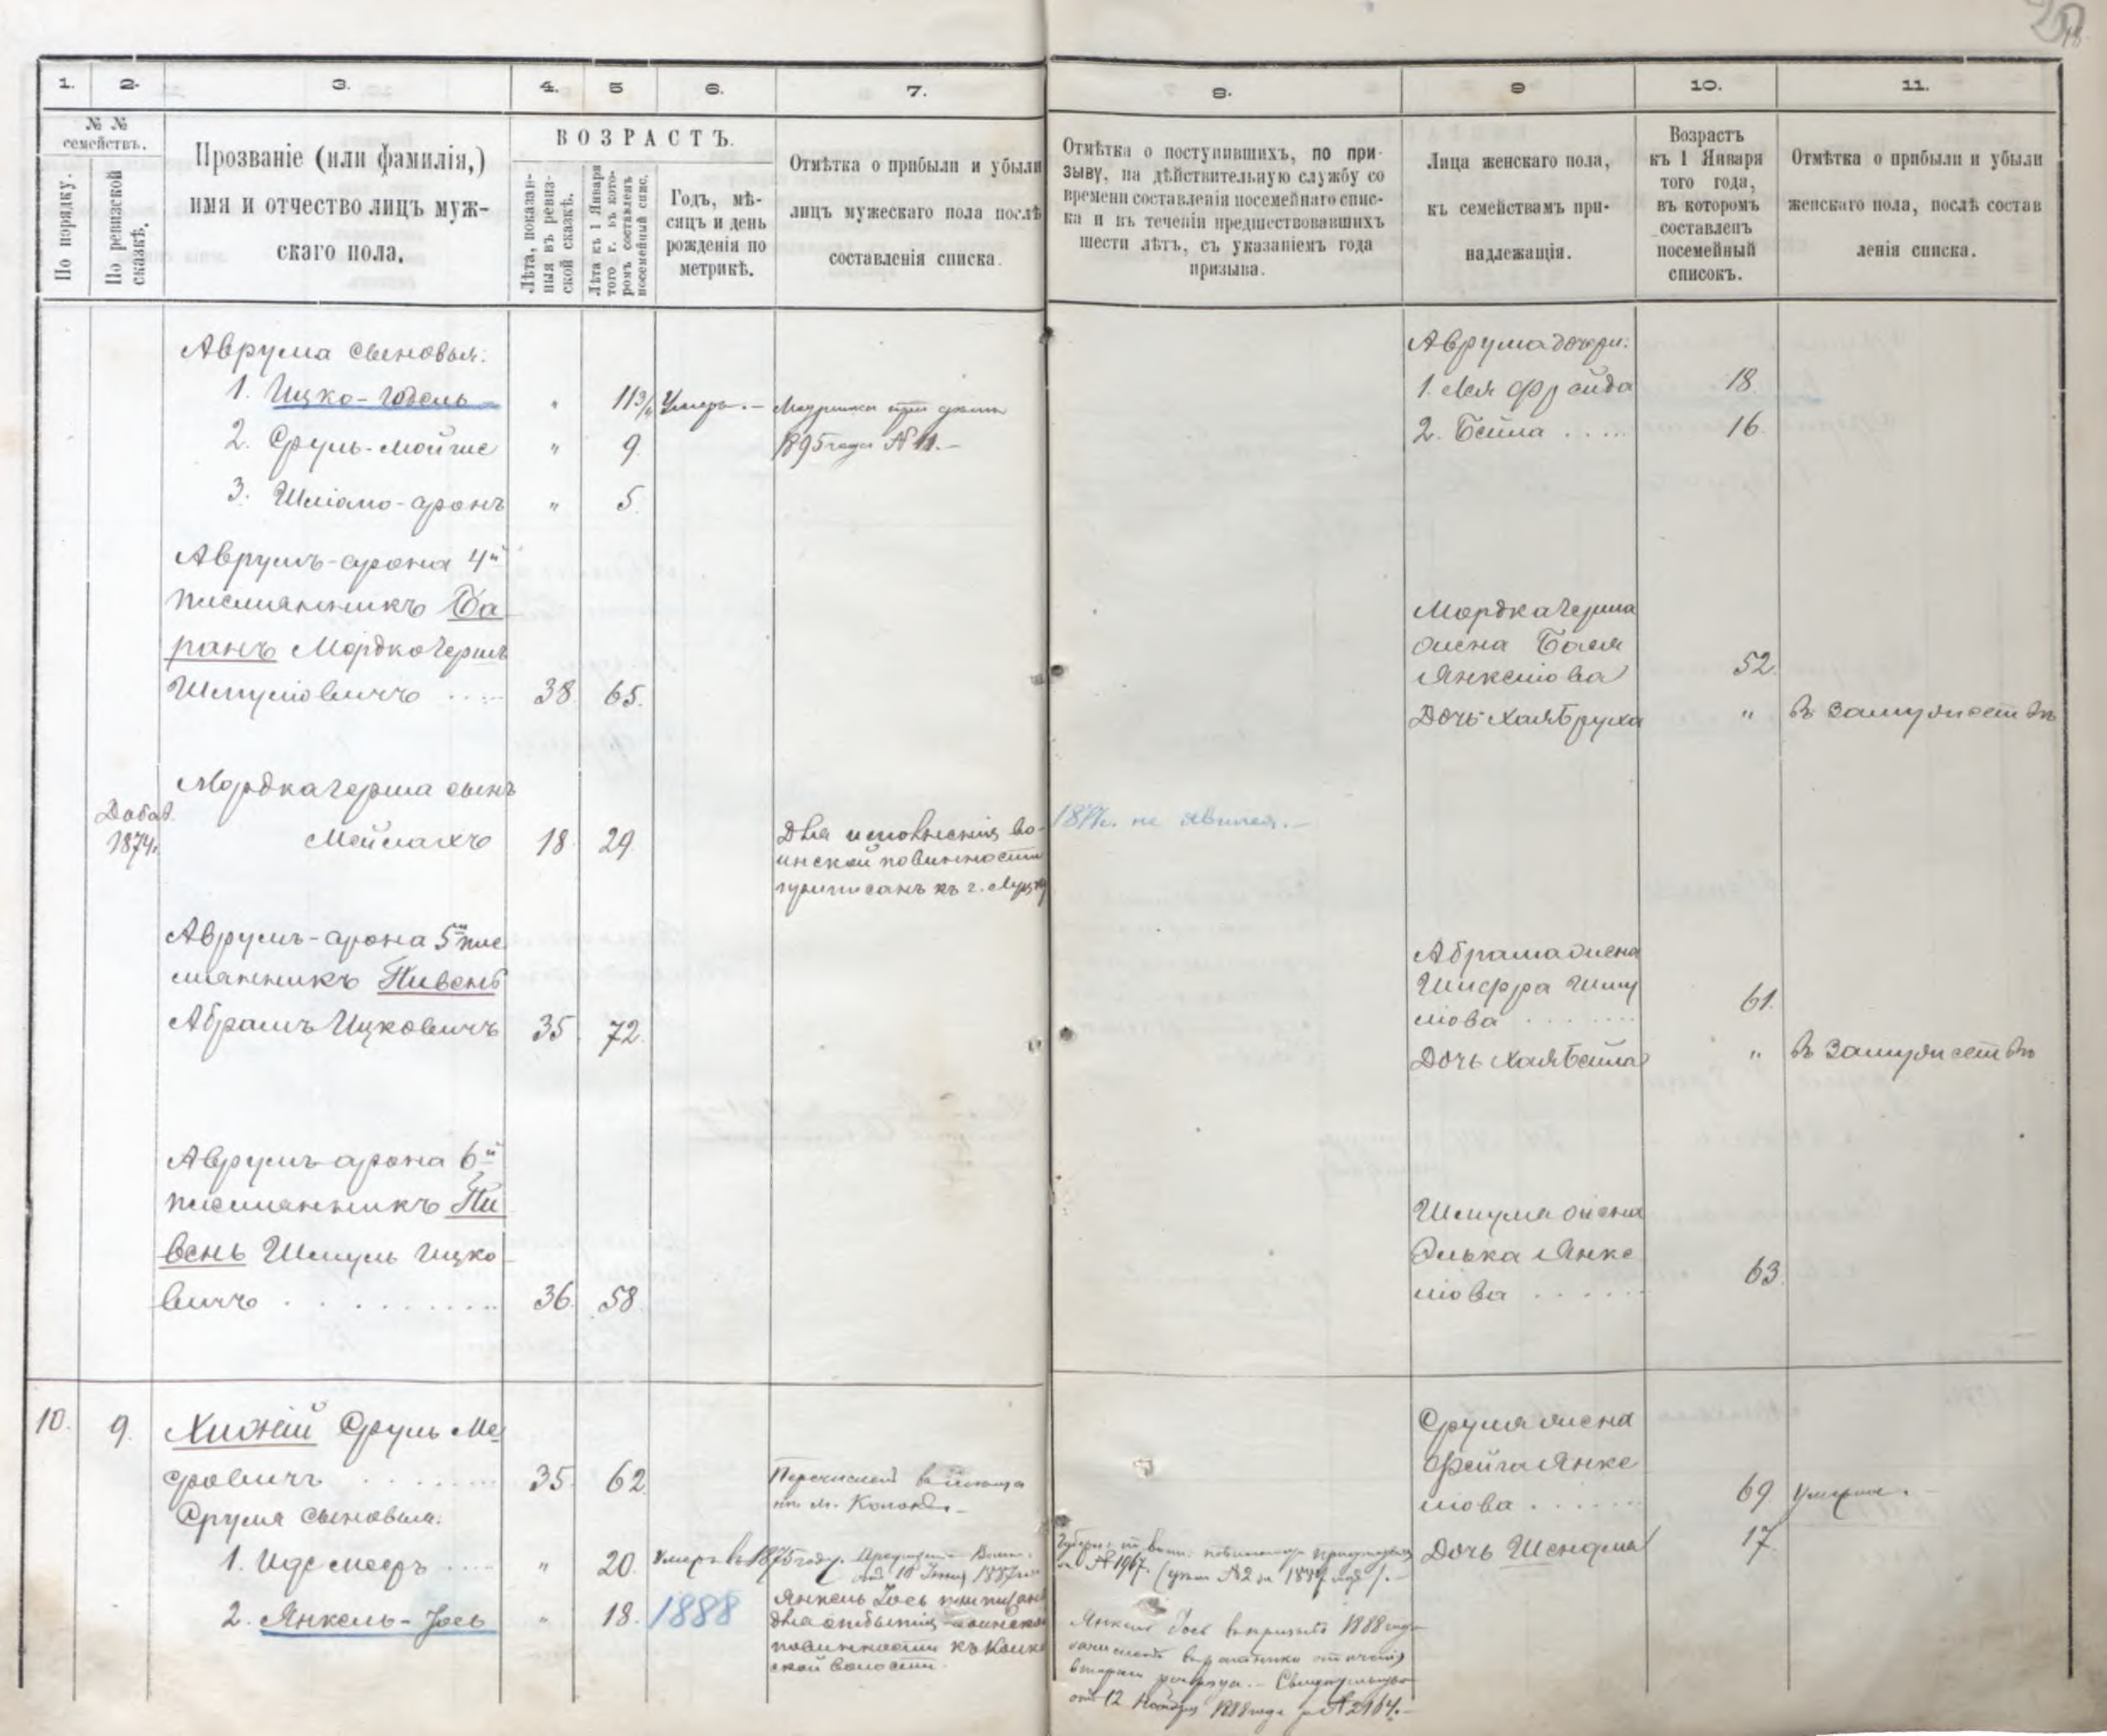 1. 2. 3. 4. 5 6. 7. 8. 9 10. 11.
№ № семействъ.
По порядку.
По ревизской сказкѣ.
Прозваніе (или фамилія,)
имя и отчество лицъ муж-
скаго пола.
ВОЗРАСТЪ.
Лѣта, показан-
ныя въ ревиз-
ской сказкѣ.
Лѣта къ 1 Января
того г. въ кото-
ромъ составленъ
посемейный спис.
Годъ, мѣ-
сяцъ и день
рожденія по
метрикѣ.
Отмѣтка о прибыли и убыли
лицъ мужескаго пола послѣ
составленія списка.
Отмѣтка о поступившихъ, по при-
зыву, на дѣйствительную службу со
времени составленія посемейнаго спис-
ка и въ теченіи предшествовавшихъ
шести лѣтъ, съ указаніемъ года
призыва.
Лица женскаго пола,
къ семействамъ при-
надлежащія.
Возрастъ
къ 1 Января
того года,
въ которомъ
составленъ
посемейный
списокъ.
Отмѣтка о прибыли и убыли
женскаго пола, послѣ состав
ленія списка.
Аврума сыновья: Аврума дочери:
1. Ицко-Юдель " 11 Умеръ.- 1. Лея Фрейда 18.
2. Сруль-Мойше " 9. 1895 года № 11.- 2. Бейла ..... 16.
3. Шліомо-аронъ " 5.
Аврумъ-арона 4й
племянникъ Ба-
ранъ Мордко Гершъ
Шмуліовичъ ..... 38. 65.
Мордка Герша
жена Бася
Янкеліова 52.
Дочь Хая Бруха " въ замужествѣ
Мордка Герша сынъ
Добав.
1874г.
Мейлахъ 18. 29.
Для исполненія во-
инской повинности
приписанъ къ г. Луцку
не явился.-
Аврумъ-арона 5й пле
мянникъ Пивень
Абрамъ Ицковичъ 35. 72.
Абрама жена
Шифра Шму
ліова ....... 61.
Дочь Хая Бейла " въ замужествѣ
Аврумъ-арона 6й
племянникъ Пи
вень Шмуль Ицко-
вичъ .......... 36. 58.
Шмуля жена
Элька Янке
ліова ...... 63.
10. 9. Хижній Сруль Ме
еровичъ ....... 35. 62.
Перечисленъ
въ м. Колонк.-
Сруля жена
Фейга Янке
ліова ...... 69. умерла.
Сруля сыновья:
1. Идсмееръ ..... " 20. Умеръ въ 1875 году.
1887
за № 1967. (указ № 2 за 1887 годъ).-
Дочь Шендля 17.
2. Янкель-Іось " 18. 1888
Янкель Іось приписанъ
для отбытія воинской
повинности къ Колк
ской волости.
Янкель Іось въ призывъ 1888 года
зачисленъ въ ратники ополченія
втораго разряда.- Свидѣтельство
отъ 12 Ноября 1888 года за № 2164.-